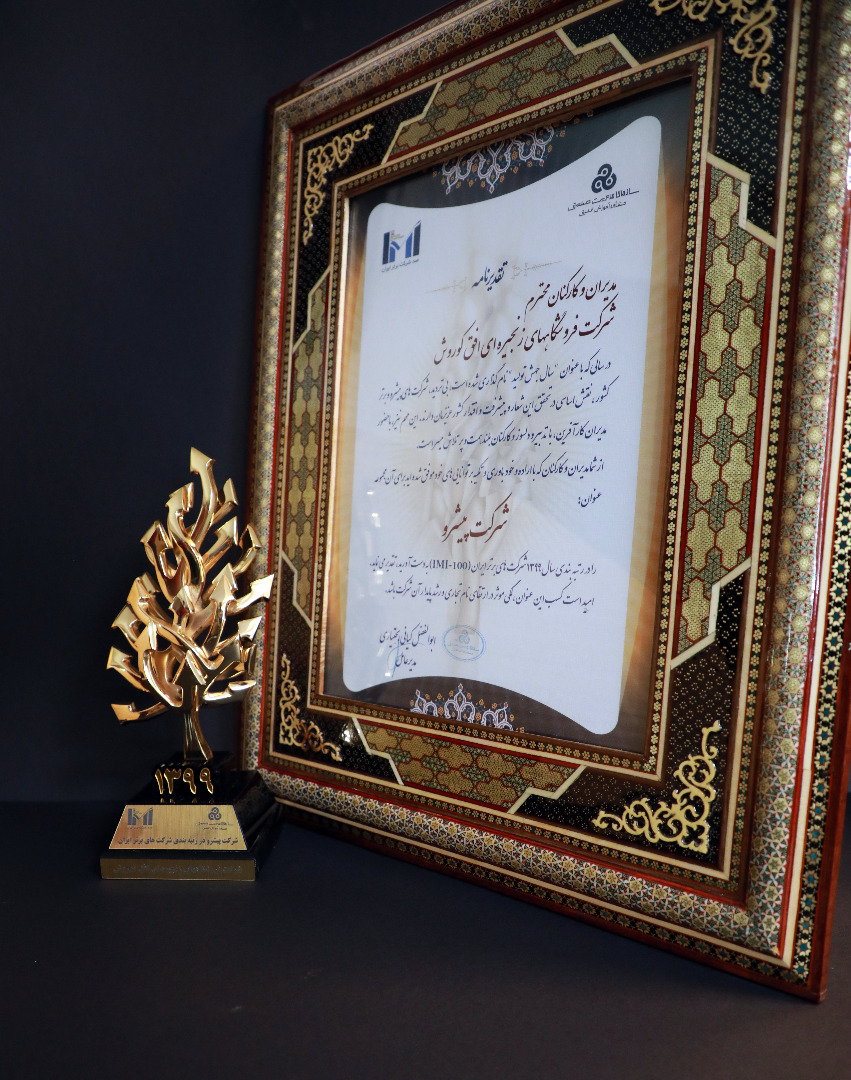 سازمان مدیریت صنعتی
مشاوره آموزش تحقیق
IMI
صد شرکت برتر ایران
تقدیرنامه
مدیران و کارکنان محترم
شرکت فروشگاههای زنجیره ای افق کوروش
در سالی که با عنوان "سال جهش تولید" نام گذاری شده است، بی تردید، شرکت های پیشرو و برتر
کشور، نقش اساسی در تحقق این شعار و پیشرفت و اقتدار کشور عزیزمان دارند، این مهم نیز با حضور
مدیران کارآفرین، با تدبیر و دلسوز و کارکنان بلندهمت و پر تلاش میسر است.
از شما مدیران و کارکنان که با اراده و خود باوری و تکیه بر توانایی های خود موفق شده اید برای آن مجموعه
عنوان:
شرکت پیشرو
را در رتبه بندی سال ۱۳۹۹ شرکت های برتر ایران (IMI-100) بدست آورید، تقدیر می نماید.
امید است کسب این عنوان، کمکی موثر در ارتقای نام تجاری و رشد پایدار آن شرکت باشد.
ابوالفضل کیانی بختیاری
مدیرعامل
۱۳۹۹
شرکت پیشرو در رتبه بندی شرکت های برتر ایران